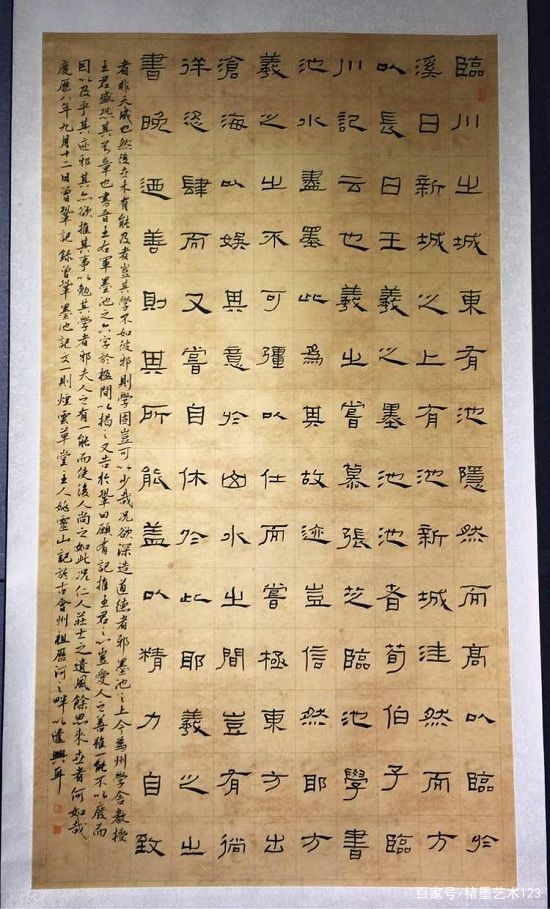 臨川之城東有池隱然而高以臨於
溪曰新城之上有池新城洼然而方
以長曰王羲之墨池池者荀伯子臨
川記云也羲之嘗慕張芝臨池學書
池水盡墨此為其故迹豈信然耶方
羲之之不可彊以仕而嘗極東方出
滄海以娛其意於山水之間豈有徜
徉恣肆而又嘗自休於此耶羲之之
書晚迺善則其所能蓋以精力自致
者非天成也然後世未有能及者豈其學不如彼邪則學固豈可以少哉況欲深造道德者邪墨池之上今為州學舍教授
王君盛恐其不章也書晉王右軍墨池之六字於楹間以揭之又告於鞏曰願有記推王君之心豈愛人之善雖一能不以廢而
因以及乎其迹邪其亦欲推其事以勉其學者邪夫人之有一能而使後人尚之如此況仁人莊士之遺風餘思來世者何如哉
慶曆八年九月十二日曾鞏記錄曾鞏墨池記文一則煙雲草堂主人姚靈山記於古會州祖厲河之畔以遣興耳
百家号/楮墨艺术123